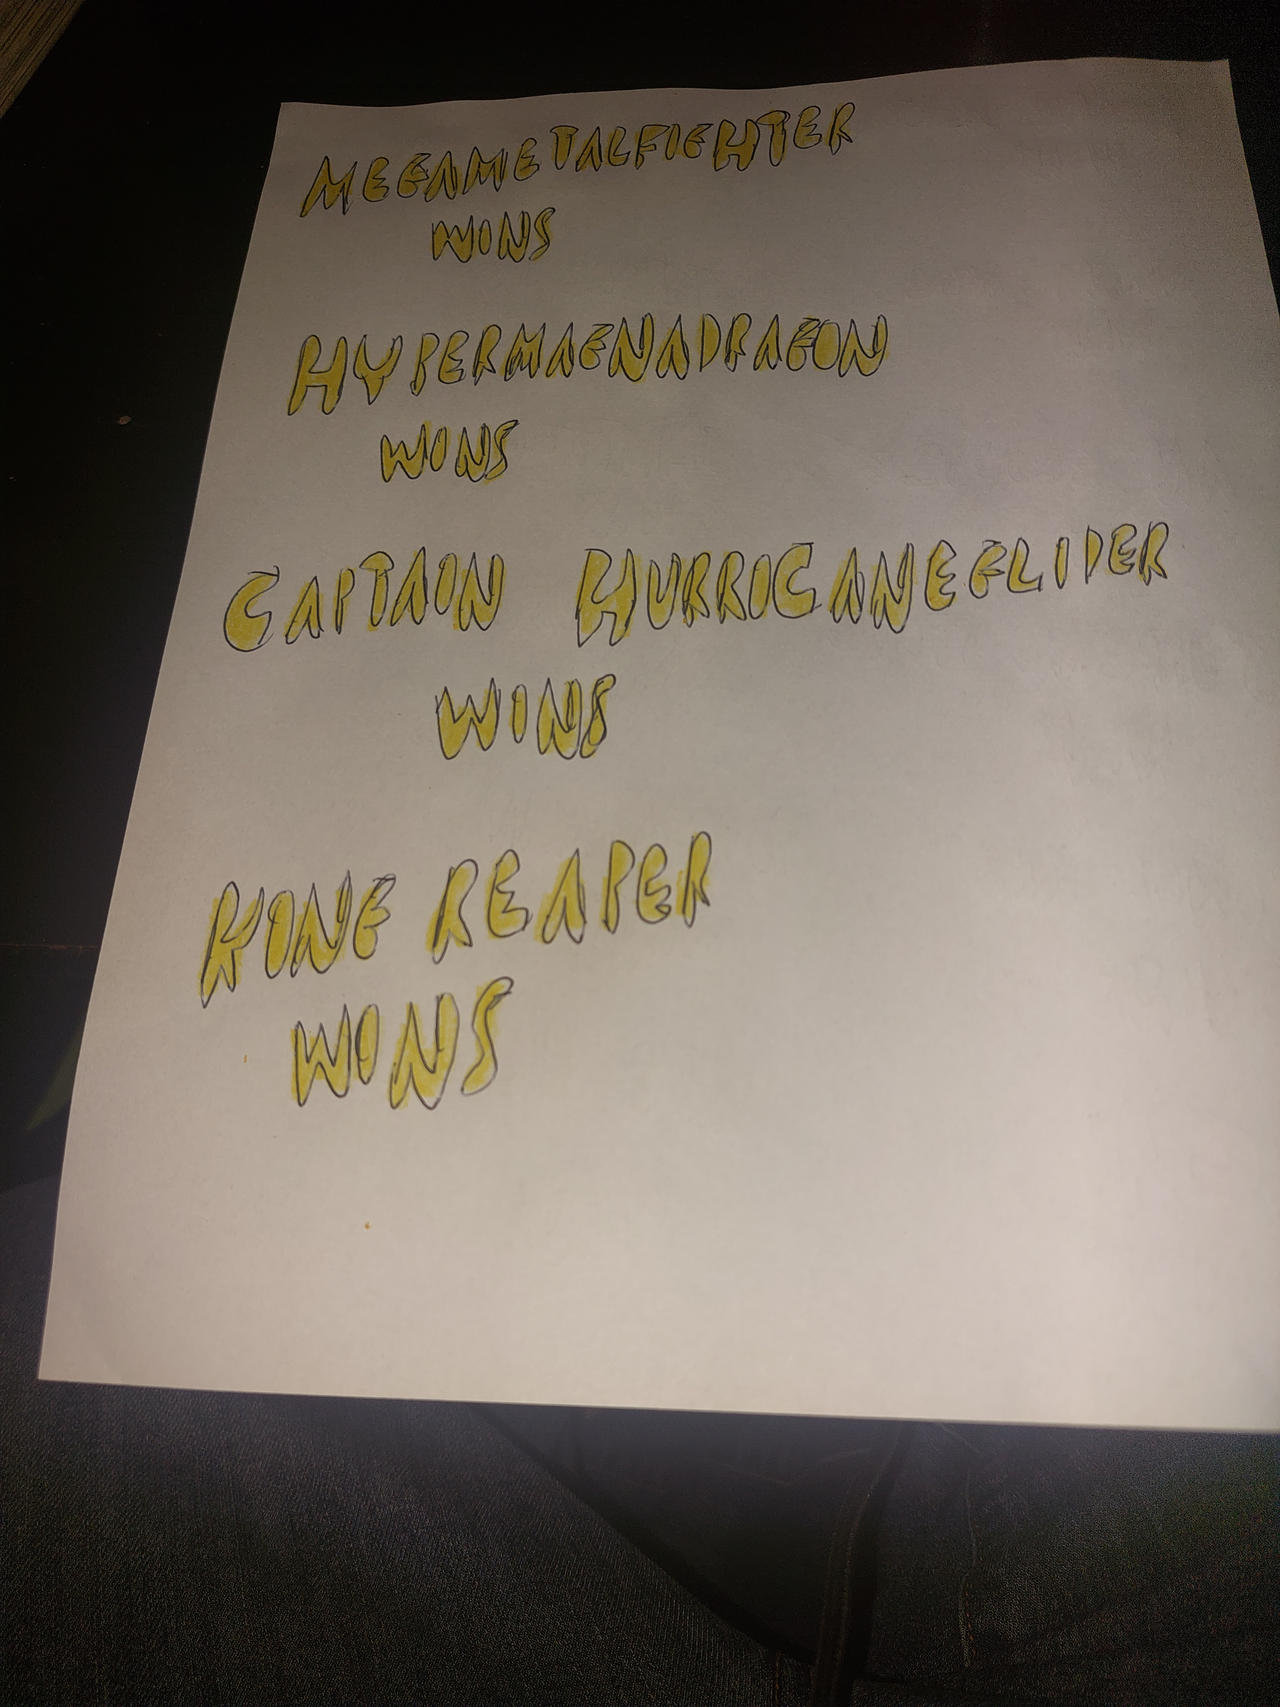 MEGAMETALFIGHTER
WINS
HYPERMAGNADRAGON
WINS
CAPTAIN HURRICANEGLIDER
WINS
KING REAPER
WINS